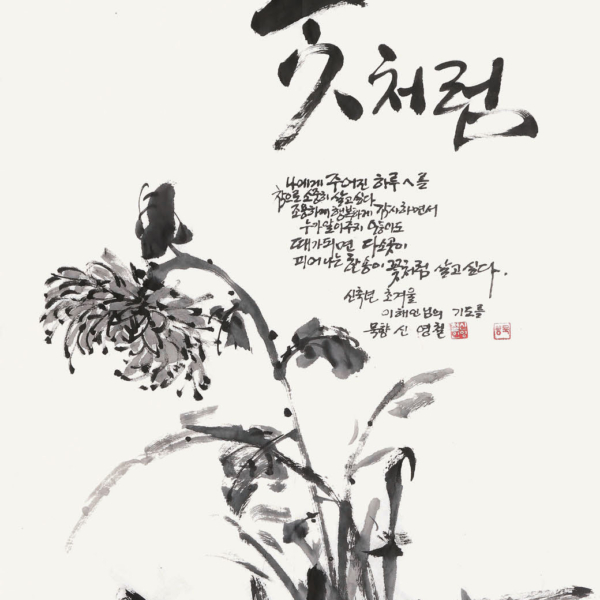 꽃처럼
나에게 주어진 하루를
참으로 소중히 살고싶다
조용하게 행복하게 감사하면서
누가 알아주지 않아도
때가 되면 다소곳이
피어나는 한송이 꽃처럼 살고싶다.
신축년 초겨울
이해인님의 기도를
묵향 신영철